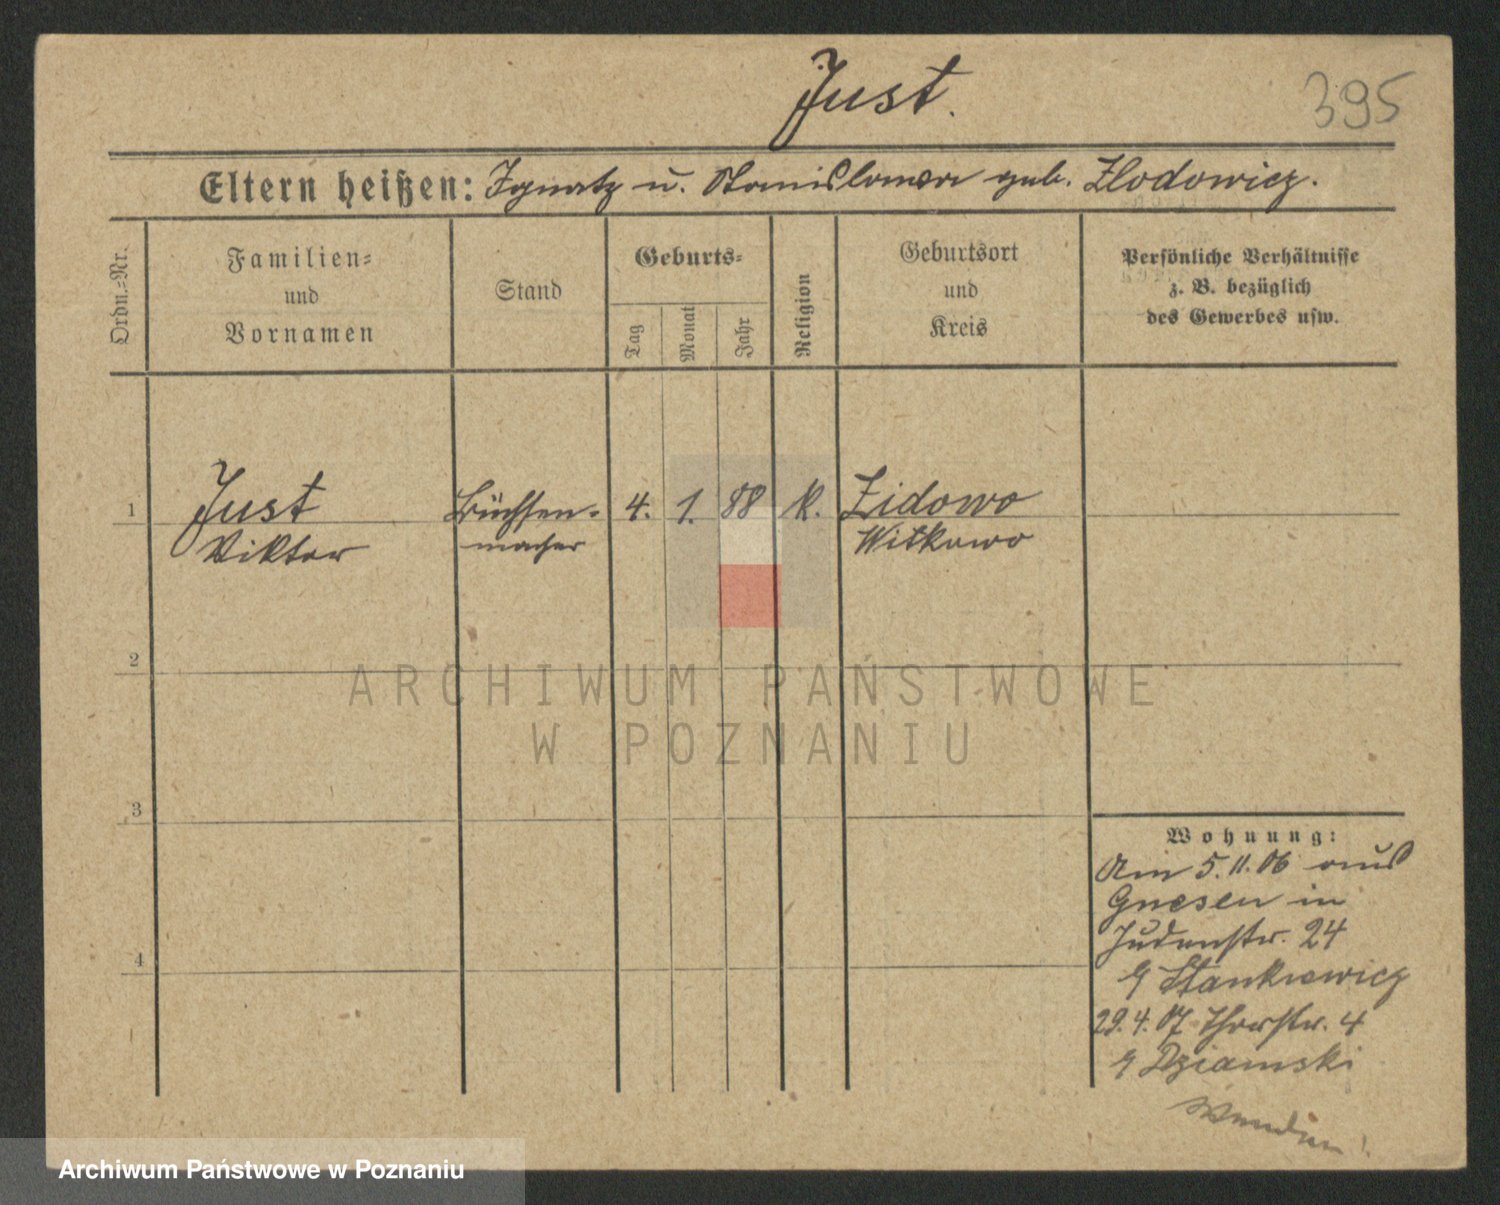 Just.
395
Eltern heißen: Ignatz u. Stanislawa geb. Zlodowicz.
Ordn.=Nr.
Familien=
und
Vornamen
Stand
Geburts=
Tag
Monat
Jahr
Religion
Geburtsort
und
Kreis
Persönliche Verhältnisse
z. B. bezüglich
des Gewerbes usw.
1 Just Büchsen- 4. 1. 88 k. Zidowo
Viktor macher Witkowo
2
3
4
Wohnung:
Am 5.11.06 aus
Gnesen in
Judenstr. 24
Stankiewicz
29.4.07 Thorstr. 4
Dziamski
Wenden!
ARCHIWUM PAŃSTWOWE
W POZNANIU
Archiwum Państwowe w Poznaniu